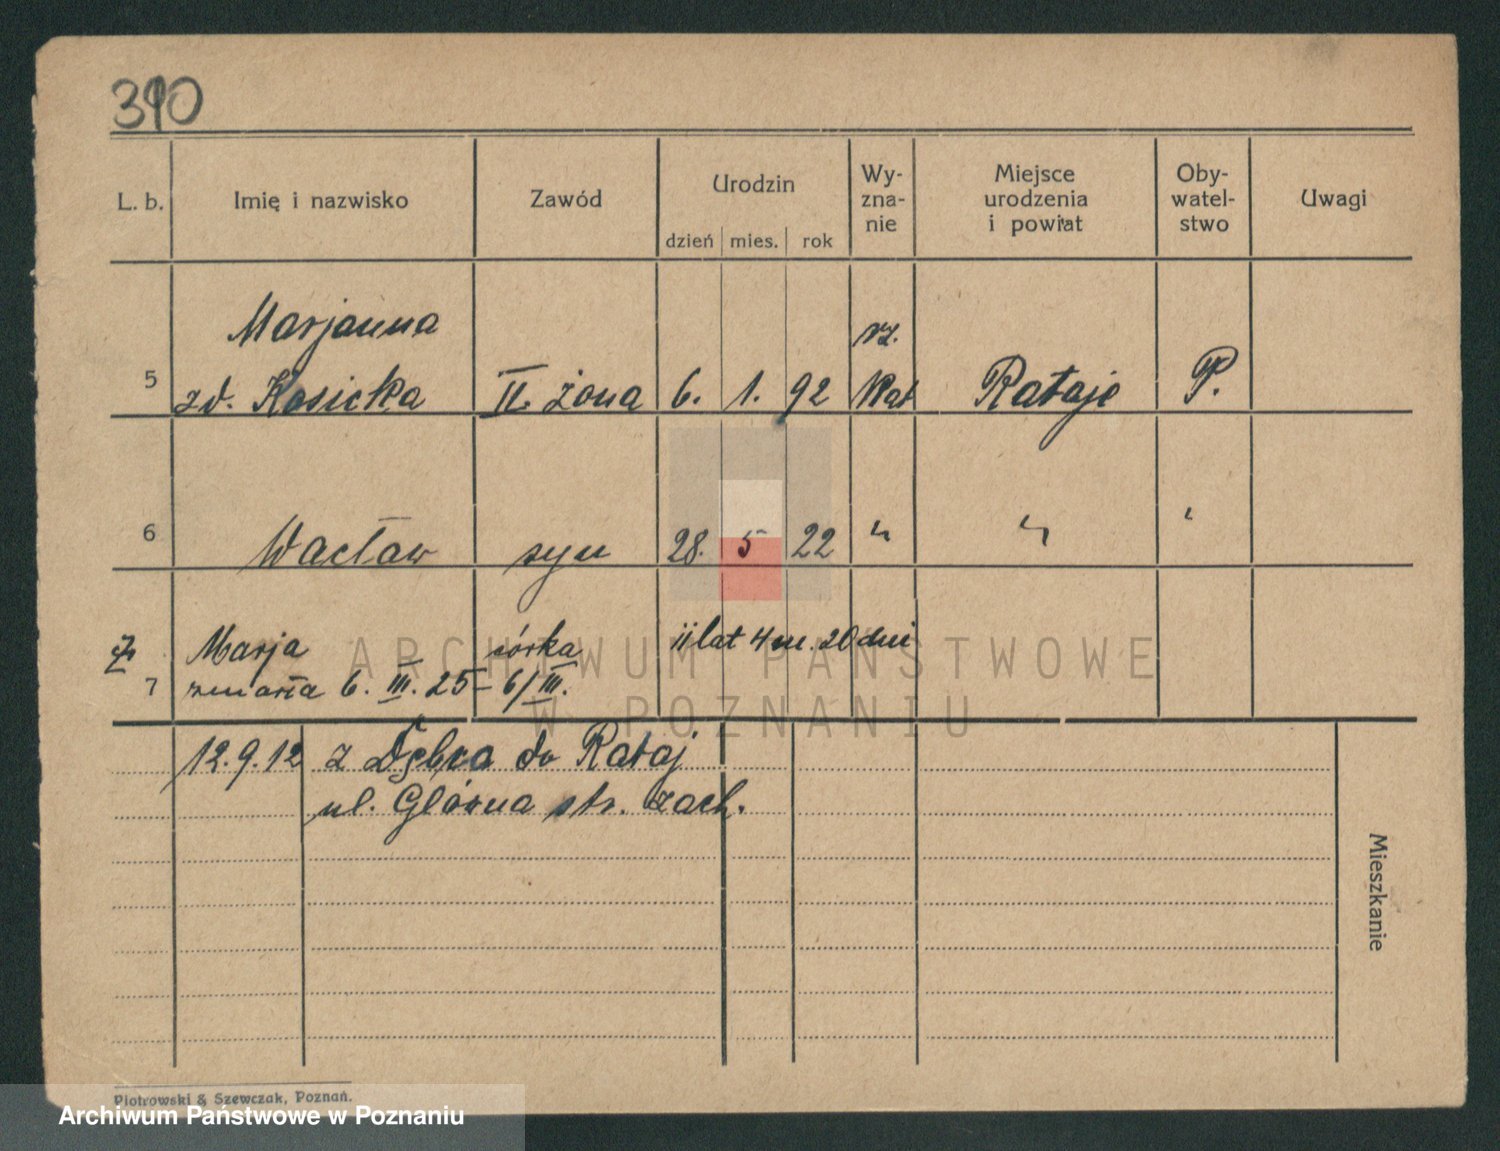 390
L. b.
Imię i nazwisko
Zawód
Urodzin
dzień mies. rok
Wy-
zna-
nie
Miejsce
urodzenia
i powiat
Oby-
watel-
stwo
Uwagi
Marjanna
rz.
5 zd. Kosicka II. żona 6. 1. 92 Kat Rataje P.
6 Wacław syn 28. 5 22 " " "
Marja córka 11 lat 4 m. 20 dni
7 zmarła 6. III. 25 - 6/III.
12.9.12 z Dębca do Rataj
ul. Główna str. zach.
Mieszkanie
Piotrowski & Szewczak, Poznań.
ARCHIWUM PAŃSTWOWE
W POZNANIU
Archiwum Państwowe w Poznaniu